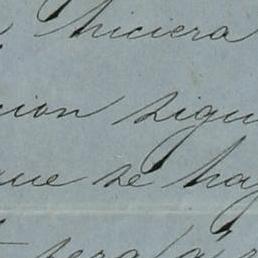 hiciera
cion sigu
que se hay
sera